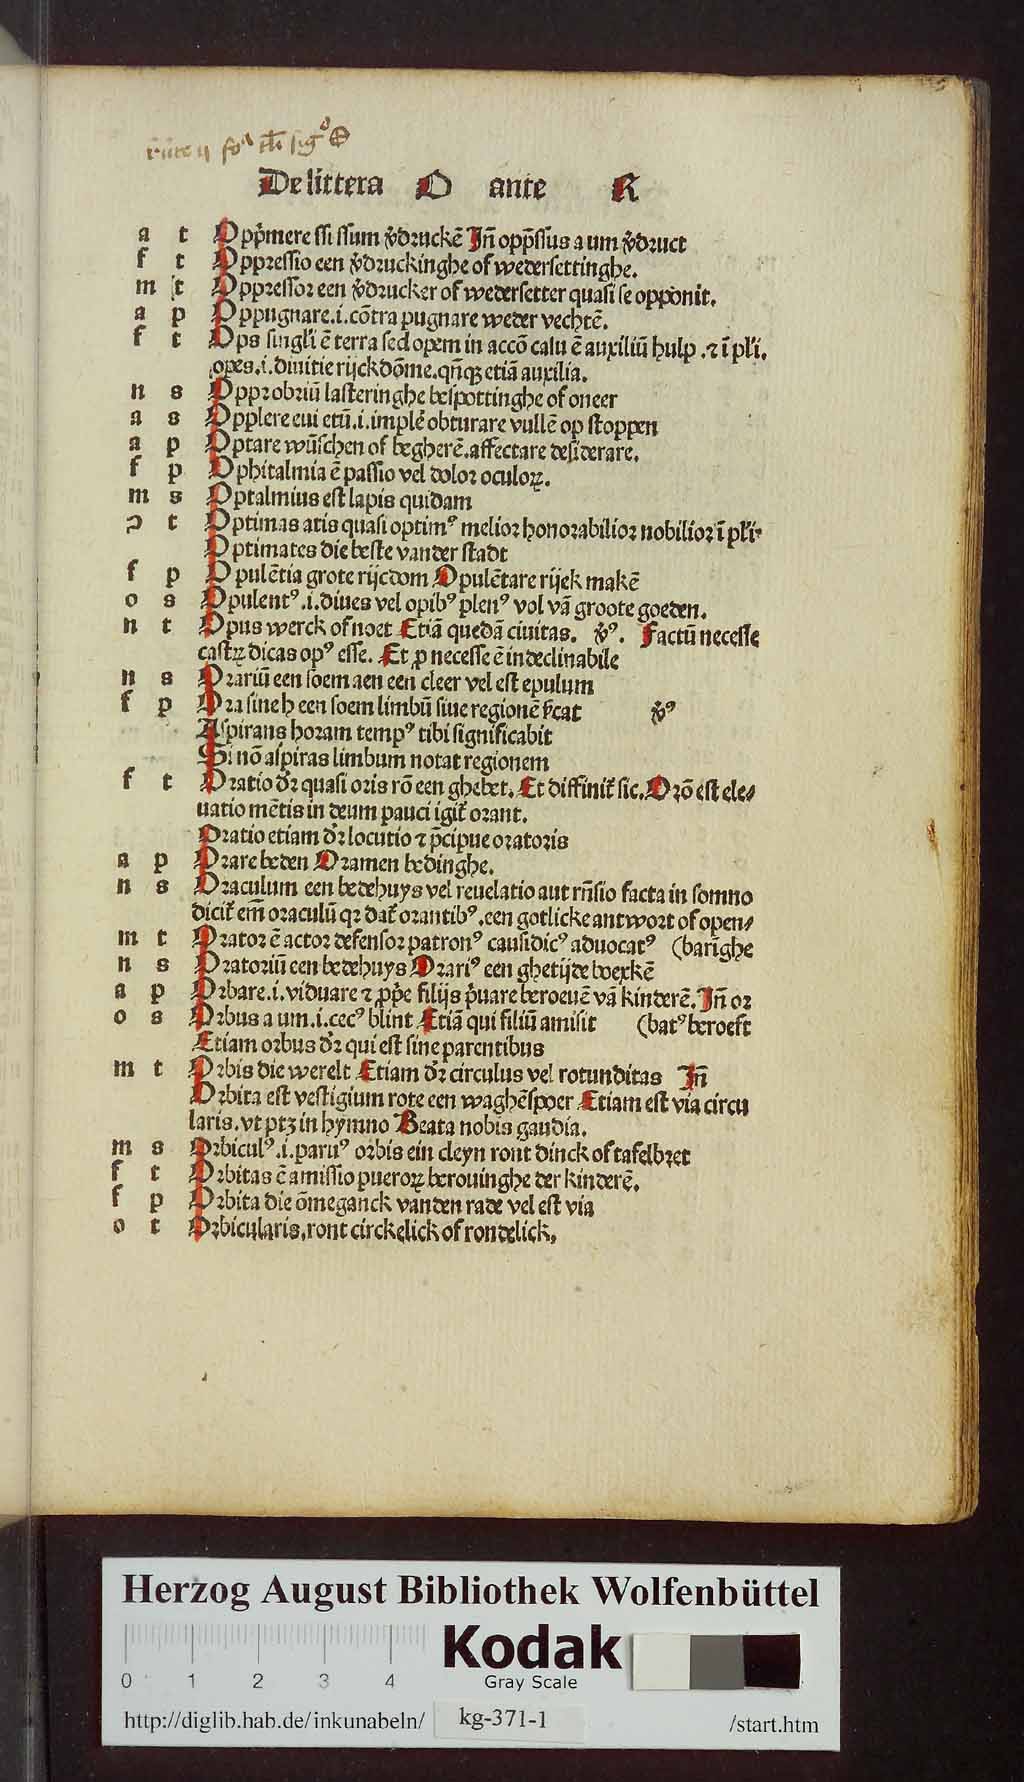 De littera O ante R
a t Opp̃mere ssi ssum v̾druckē Iñ opp̃ssus a um v̾druct
f t Oppressio een v̾druckinghe of wedersettinghe.
m t Oppressor een v̾drucker of wedersetter quasi se opponit.
a p Oppugnare.i.cōtra pugnare weder vechtē.
f t Ops singl'i ē terra sed opem in accō calu ē auxiliū hulp .⁊ ī pl'i.
opes.i.diuitie rijckdōme.qñqꝫ etiā auxilia.
n s Opprobriū lasteringhe bespottinghe of oneer
a s Opplere eui etū.i.implē obturare vullē op stoppen
a p Optare wūschen of begherē.affectare desiderare.
f p Ophitalmia ē passio vel dolor oculoꝝ.
m s Optalmius est lapis quidam
ɔ t Optimas atis quasi optimꝰ melior honorabilior nobilior ī pl'i
Optimates die beste vander stadt
f p Opulētia grote rijcdom Opulētare rijek makē
o s Opulentꝰ.i.diues vel opibꝰ plenꝰ vol vā groote goeden.
n t Opus werck of noet Etiā quedā ciuitas. v̾ꝰ. Factū necesse
castꝝ dicas opꝰ esse. Et ꝓ necesse ē indeclinabile
n s Orariū een soem aen een cleer vel est epulum
f p Ora sine h een soem limbū siue regionē p̄cat v̾ꝰ
Aspirans horam tempꝰ tibi significabit
Si nō aspiras limbum notat regionem
f t Oratio dr̄ quasi oris rō een ghebet. Et diffinit̄ sic. Orō est ele⸗
uatio mētis in deum pauci igit̄ orant.
Oratio etiam dr̄ locutio ⁊ p̄cipue oratoris
a p Orare beden Oramen bedinghe.
n s Oraculum een bedehuys vel reuelatio aut rñsio facta in somno
dicit̄ em̄ oraculū qꝛ dat̄ orantibꝰ.een gotlicke antwort of open⸗
m t Orator ē actor defensor patronꝰ causidicꝰ aduocatꝰ (barīghe
n s Oratoriū een bedehuys Orariꝰ een ghetijde boexkē
a p Orbare.i.viduare ⁊ ꝓp̄e filijs p̄uare beroeuē vā kinderē. Iñ or
o s Orbus a um.i.cecꝰ blint Etiā qui filiū amisit (batꝰ beroeft
Etiam orbus dr̄ qui est sine parentibus
m t Orbis die werelt Etiam dr̄ circulus vel rotunditas Iñ
Orbita est vestigium rote een waghēspoer Etiam est via circu
laris.vt ptꝫ in hymno Beata nobis gaudia.
m s Orbiculꝰ.i.paruꝰ orbis ein cleyn ront dinck of tafelbret
f t Orbitas ē amissio pueroꝝ berouinghe der kinderē.
f p Orbita die ōmeganck vanden rade vel est via
o t Orbicularis.ront circkelick of rondelick.
Herzog August Bibliothek Wolfenbüttel
Kodak
0 1 2 3 4
Gray Scale
http://diglib.hab.de/inkunabeln/ kg-371-1 /start.htm